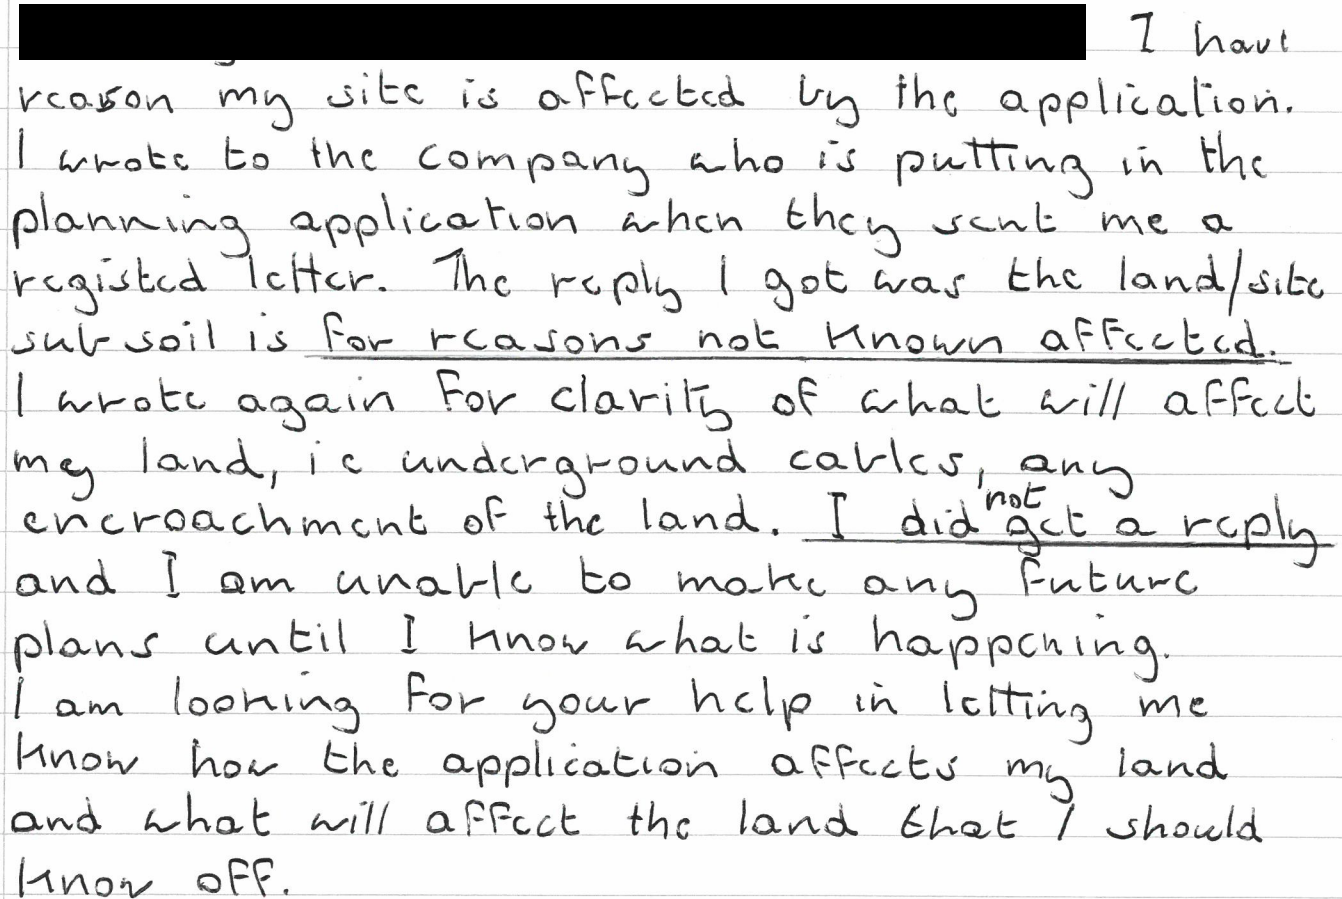 I have
reason my site is affected by the application.
I wrote to the company who is putting in the
planning application when they sent me a
registed letter. The reply I got was the land/site
sub soil is for reasons not known affected.
I wrote again for clarity of what will affect
my land, ie underground cables, any
encroachment of the land. I did not get a reply
and I am unable to make any future
plans until I know what is happening.
I am looking for your help in letting me
know how the application affects my land
and what will affect the land that I should
know off.